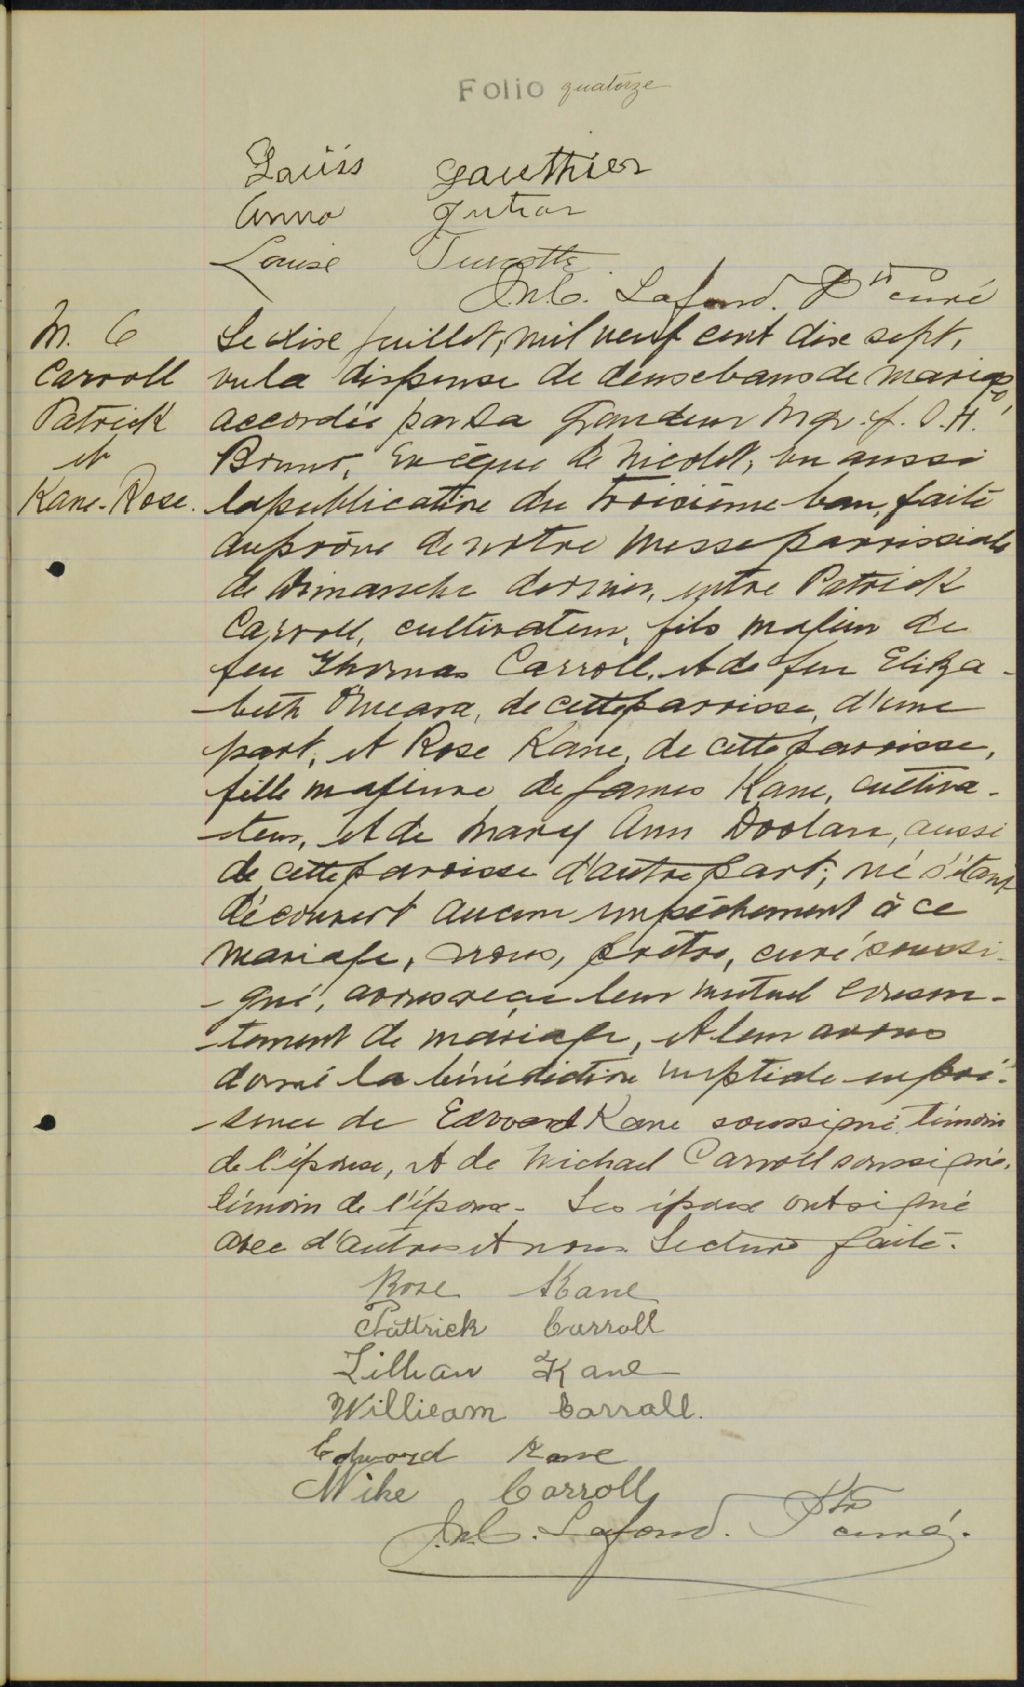 Folio quatorze
Louis Gauthier
Anna Jutras
Louise Turcotte
Lafond. Ptre curé
M. 6
Carroll
Patrick
et
Kane-Rose.
Le dix juillet, mil neuf cent dix sept,
vu la dispense de deux bans de mariage
accordée par Sa Grandeur Mgr. J. S. H.
Bruno, Évêque de Nicolet; vu aussi
la publication du troisième ban, faite
au prône de notre messe parroissiale
de dimanche dernier, entre Patrick
Carroll, cultivateur, fils majeur de
feu Thomas Carroll, et de feu Eliza-
-beth O'Meara, de cette parroisse, d'une
part, et Rose Kane, de cette parroisse,
fille majeure de James Kane, cultiva-
-teur, et de Mary Ann Doolan, aussi
de cette parroisse d'autre part; ne s'étant
découvert aucun empêchement à ce
mariage, nous, prêtre, curé soussi-
-gné, avons reçu leur mutuel consen-
-tement de mariage, et leur avons
donné la bénédiction nuptiale en pré-
-sence de Edward Kane soussigné témoin
de l'épouse, et de Michael Carroll soussigné,
témoin de l'époux. Les époux ont signé
avec d'autres et nous. Lecture faite.
Rose Kane
Pattrick Carroll
Lillian Kane
Willieam Carroll.
Edward Kane
Mike Carroll
Lafond. Ptre curé.